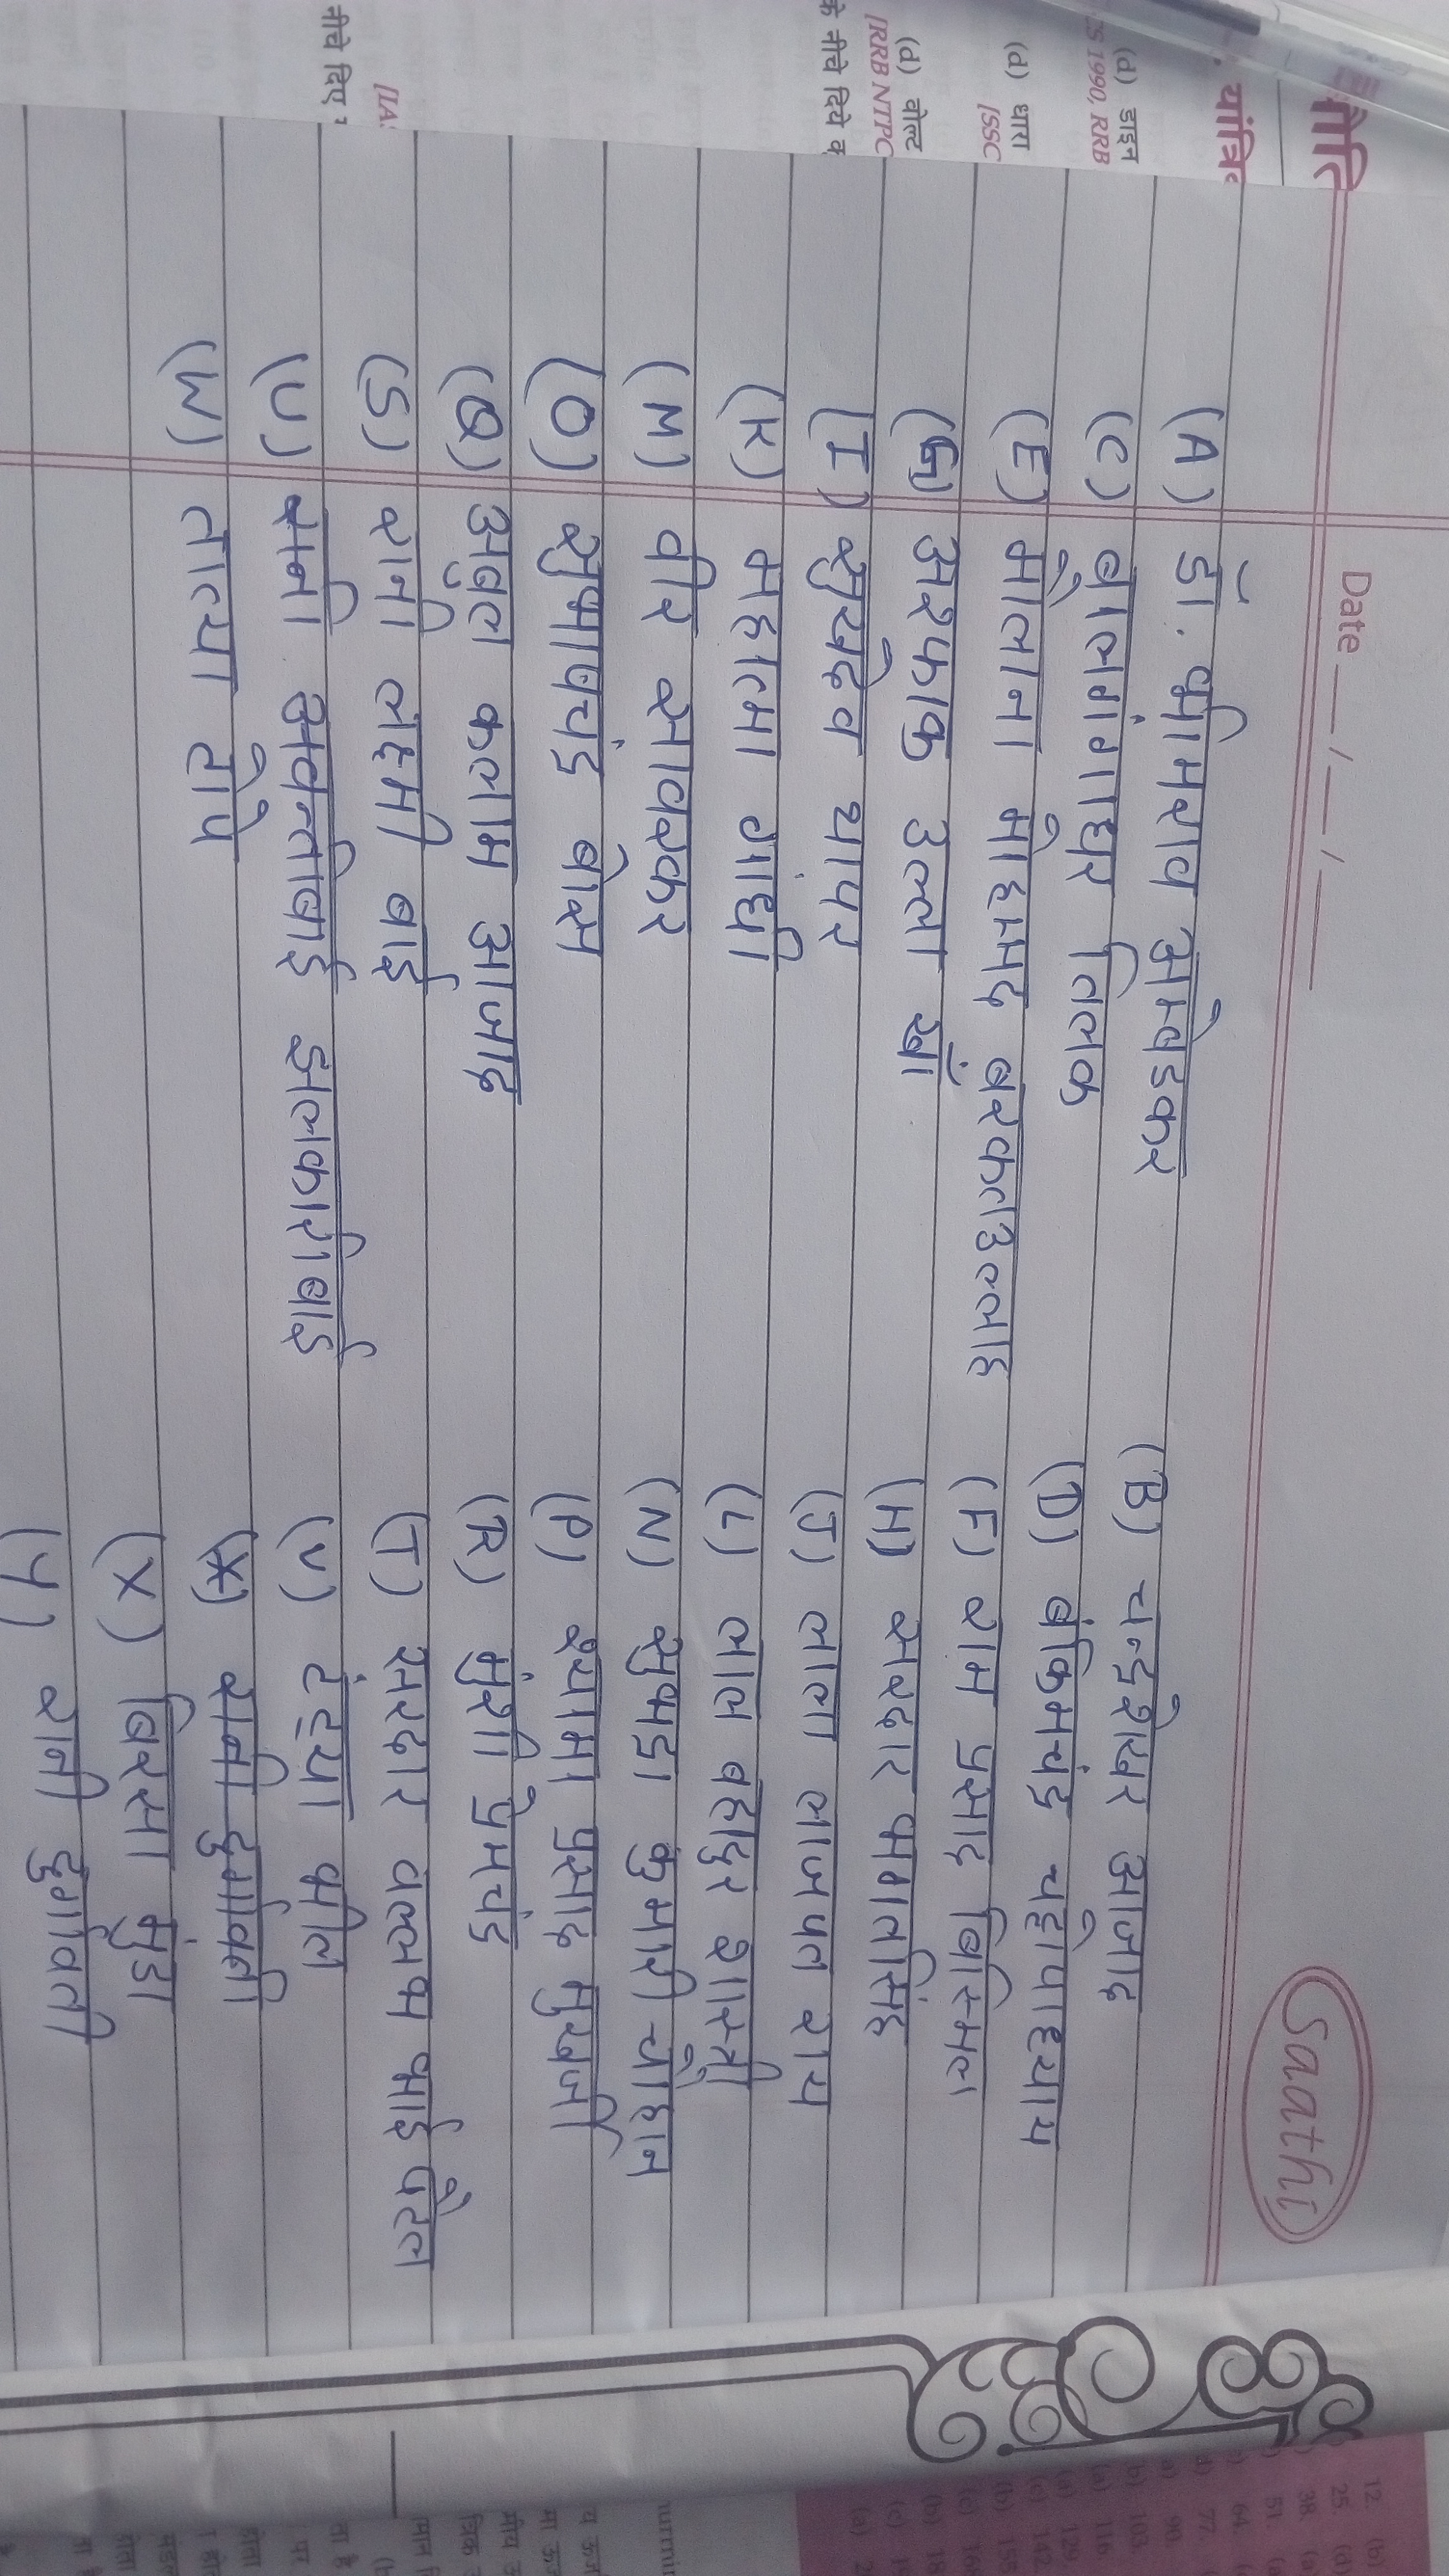 Date __/__/____
Saathi
(A) डॉ. भीमराव अम्बेडकर (B) चन्द्रशेखर आजाद
(C) बालगंगाधर तिलक (D) बंकिमचंद्र चट्टोपाध्याय
(E) मौलाना मोहम्मद बरकतउल्लाह (F) राम प्रसाद बिस्मिल
(G) अश्फाक उल्ला खाँ (H) सरदार भगतसिंह
(I) सुखदेव थापर (J) लाला लाजपत राय
(K) महात्मा गाधी (L) लाल बहादुर शास्त्री
(M) वीर सावरकर (N) सुभद्रा कुमारी चौहान
(O) सुभाषचंद्र बोस (P) श्यामा प्रसाद मुखर्जी
(Q) अबुल कलाम आजाद (R) मुंशी प्रेमचंद्र
(S) रानी लक्ष्मी बाई (T) सरदार वल्लभ भाई पटेल
(U) रानी अवन्तीबाई झलकारीबाई (V) टंट्या भील
(W) तात्या टोपे (X) रानी दुर्गावती
(X) बिरसा मुंडा
(Y) रानी दुर्गावती
यांत्रि
(d) डाइन
1990, RRB
(d) धारा
[SSC
(d) वोल्ट
[RRB NTPC
के नीचे दिये
[IA
नीचे दिए